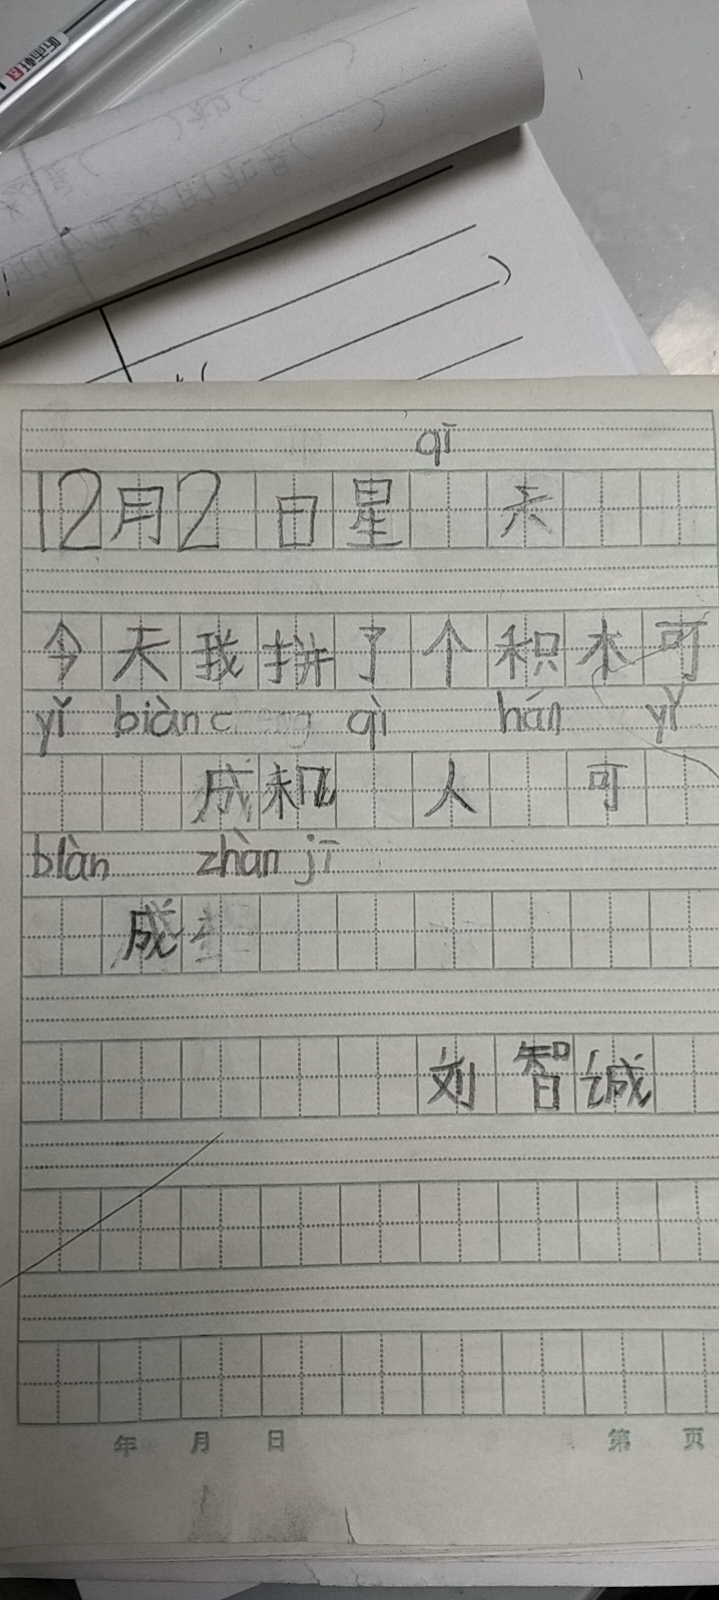 qī
12月2日星 天
今天我拼了个积木可
yǐ biàn c qì hán yǐ
成机 人 可
biàn zhàn jī
成
刘智诚
年 月 日 第 页